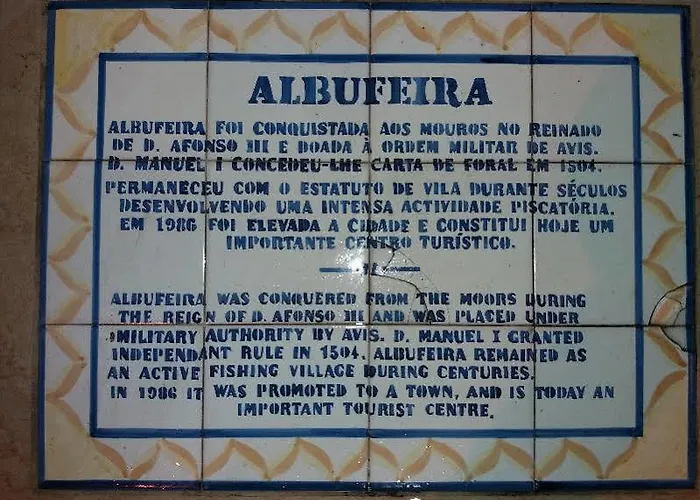 ALBUFEIRA
ALBUFEIRA FOI CONQUISTADA AOS MOUROS NO REINADO
DE D. AFONSO III E DOADA À ORDEM MILITAR DE AVIS.
D. MANUEL I CONCEDEU-LHE CARTA DE FORAL EM 1504.
PERMANECEU COM O ESTATUTO DE VILA DURANTE SÉCULOS
DESENVOLVENDO UMA INTENSA ACTIVIDADE PISCATÓRIA.
EM 1986 FOI ELEVADA A CIDADE E CONSTITUI HOJE UM
IMPORTANTE CENTRO TURÍSTICO.
ALBUFEIRA WAS CONQUERED FROM THE MOORS DURING
THE REIGN OF D. AFONSO III AND WAS PLACED UNDER
MILITARY AUTHORITY BY AVIS. D. MANUEL I GRANTED
INDEPENDANT RULE IN 1504. ALBUFEIRA REMAINED AS
AN ACTIVE FISHING VILLAGE DURING CENTURIES.
IN 1986 IT WAS PROMOTED TO A TOWN, AND IS TODAY AN
IMPORTANT TOURIST CENTRE.